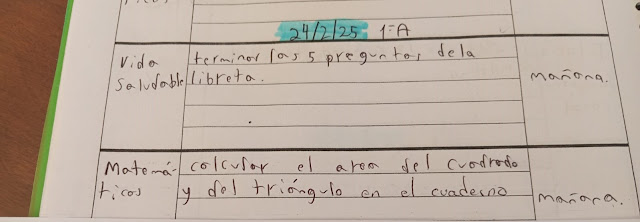 ricos
24/2/25 1=A
Vida
Saludable
terminar las 5 preguntas dela
libreta.
mañana.
Matemá-
ticas
calcular el area del cuadrado
y del triángulo en el cuaderno
mañana.